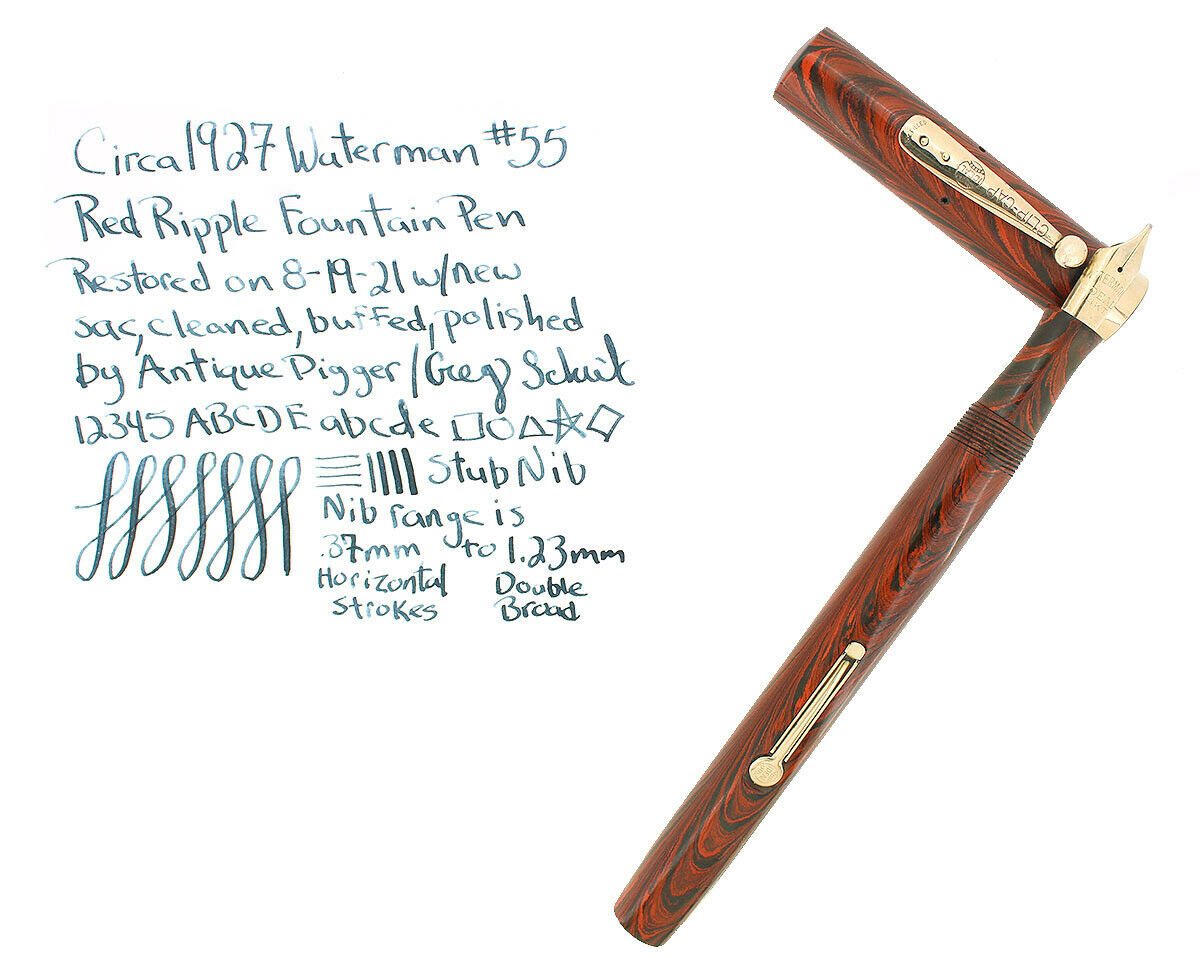 Circa 1927 Waterman #55
Red Ripple Fountain Pen
Restored on 8-19-21 w/new
sac, cleaned, buffed, polished
by Antique Digger/Greg
12345 ABCDE abcde
Stub Nib
Nib range is
.37mm to 1.23mm
Horizontal Double
Strokes Broad
CLIP-CAP